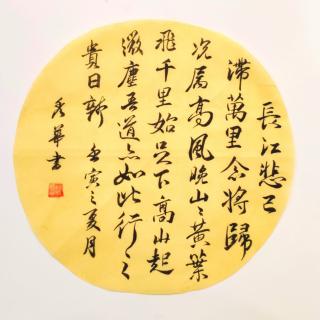 長江悲已
滯萬里念將歸
况属高風晚山々黃葉
飛千里始足下高山起
微塵吾道亦如此行之
貴日新 壬寅之夏月
秀華書